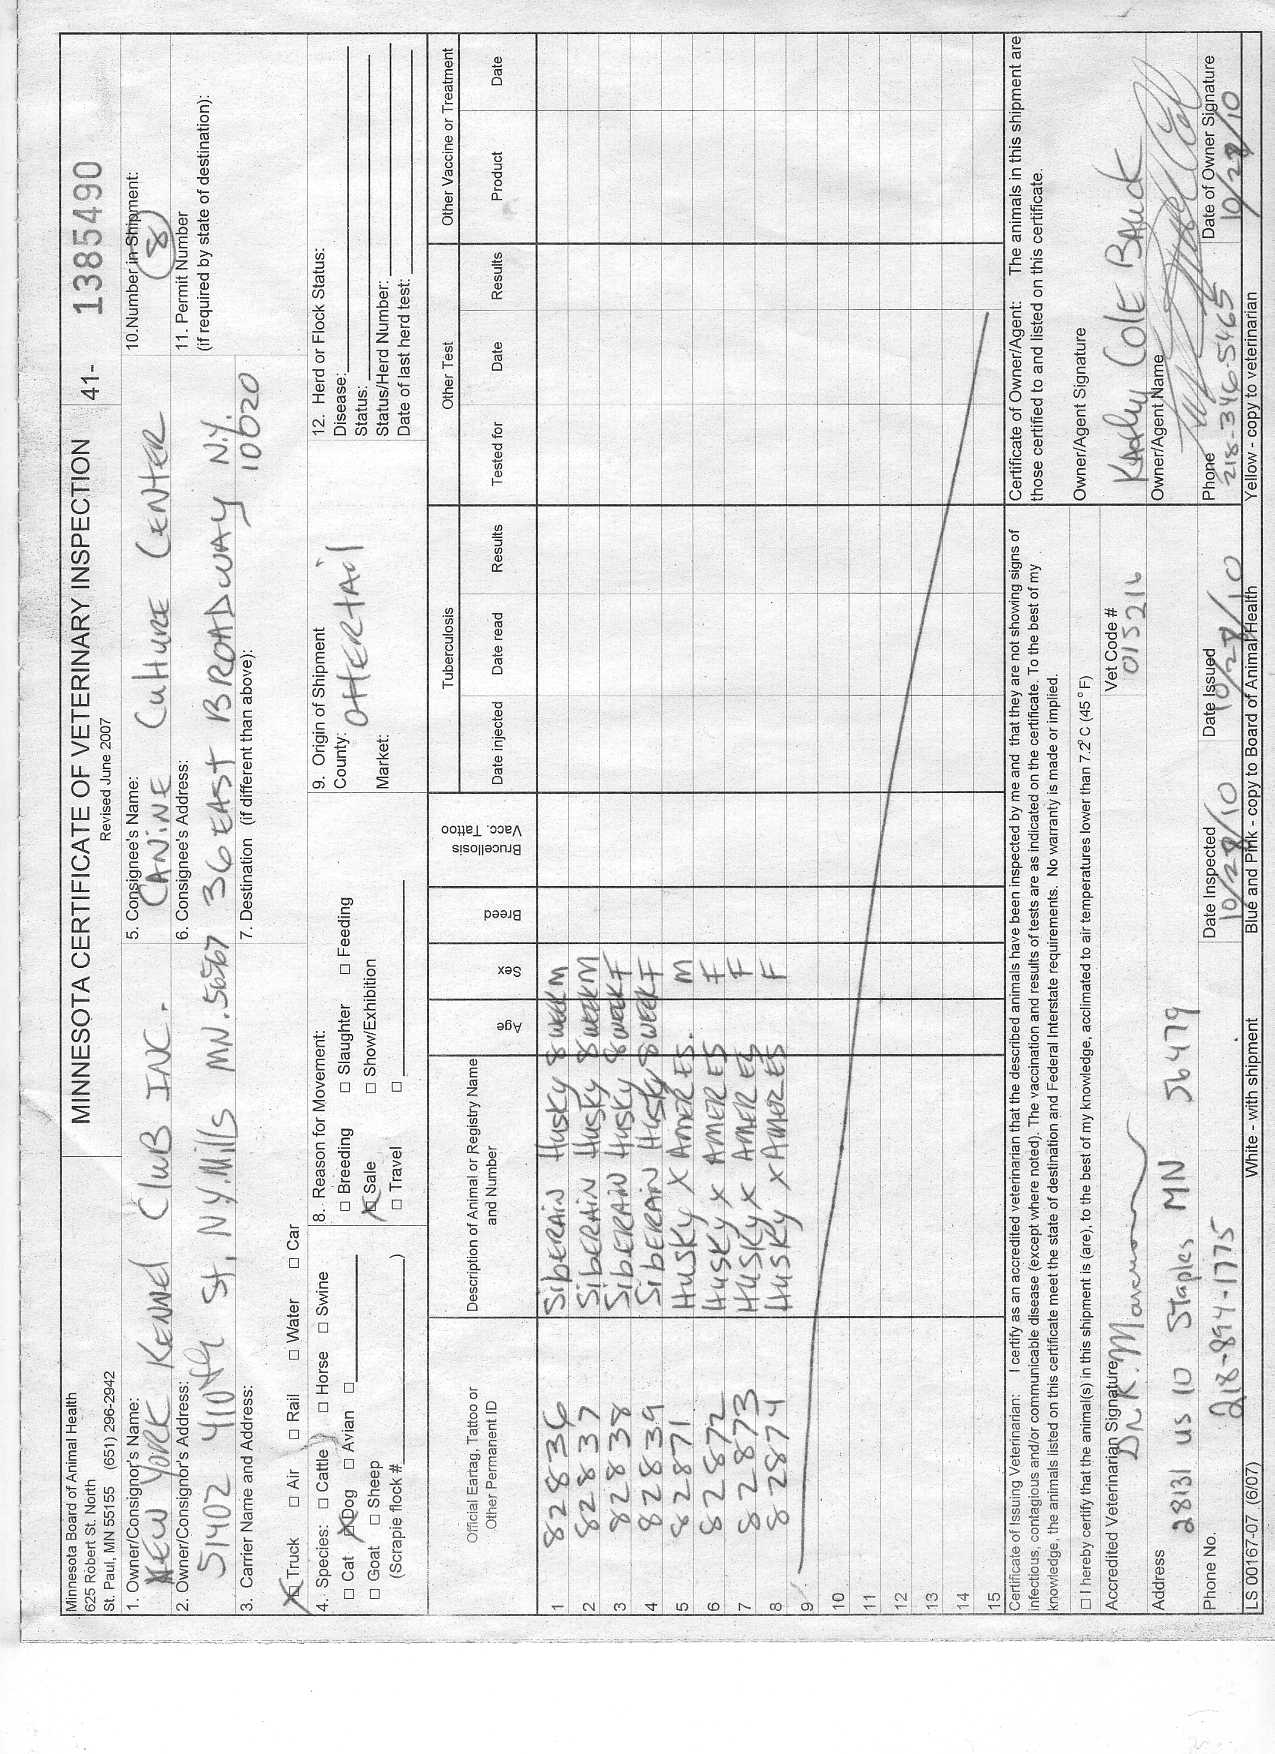 Minnesota Board of Animal Health
625 Robert St. North
St. Paul, MN 55155 (651) 296-2942
MINNESOTA CERTIFICATE OF VETERINARY INSPECTION
Revised June 2007
41- 1385490
1. Owner/Consignor's Name:
NEW YORK KENNEL CLUB INC.
2. Owner/Consignor's Address:
51402 410th St, N.Y. Mills MN. 56567
3. Carrier Name and Address:
Truck Air Rail Water Car
4. Species: Cattle Horse Swine
Cat Dog Avian
Goat Sheep
(Scrapie flock # )
5. Consignee's Name:
CANINE CultURE CENTER
6. Consignee's Address:
36 EAST BROADWAY N.Y.
10020
7. Destination (if different than above):
8. Reason for Movement:
Breeding Slaughter Feeding
Sale Show/Exhibition
Travel
9. Origin of Shipment
County: OttERtAil
Market:
10. Number in Shipment:
8
11. Permit Number
(if required by state of destination):
12. Herd or Flock Status:
Disease:
Status:
Status/Herd Number:
Date of last herd test:
Official Eartag, Tattoo or
Other Permanent ID
Description of Animal or Registry Name
and Number
Age
Sex
Breed
Brucellosis
Vacc. Tattoo
Tuberculosis
Date injected Date read Results
Other Test
Tested for Date Results
Other Vaccine or Treatment
Product Date
1 82836 SibERAiN HuSKY 8 WEEK M
2 82837 SibERAiN HuSKY 8 WEEK M
3 82838 SibERAiN HuSKY 8 WEEK F
4 82839 SibERAiN HuSKY 8 WEEK F
5 82871 HuSKY X AMER ES. M
6 82872 HuSKY X AMER ES F
7 82873 HuSKY X AMER ES F
8 82874 HuSKY X AMER ES F
9
10
11
12
13
14
15
Certificate of Issuing Veterinarian: I certify as an accredited veterinarian that the described animals have been inspected by me and that they are not showing signs of
infectious, contagious and/or communicable disease (except where noted). The vaccination and results of tests are as indicated on the certificate. To the best of my
knowledge, the animals listed on this certificate meet the state of destination and Federal Interstate requirements. No warranty is made or implied.
I hereby certify that the animal(s) in this shipment is (are), to the best of my knowledge, acclimated to air temperatures lower than 7.2°C (45° F)
Accredited Veterinarian Signature
Dr. K.
Vet Code #
015216
Address
28131 US 10 Staples MN 56479
Phone No.
218-894-1775
Date Inspected
10/28/10
Date Issued
10/28/10
Certificate of Owner/Agent: The animals in this shipment are
those certified to and listed on this certificate.
Owner/Agent Signature
KAthy Cole BAuck
Owner/Agent Name
Phone
218-346-5465
Date of Owner Signature
10/28/10
LS 00167-07 (6/07)
White - with shipment
Blue and Pink - copy to Board of Animal Health
Yellow - copy to veterinarian